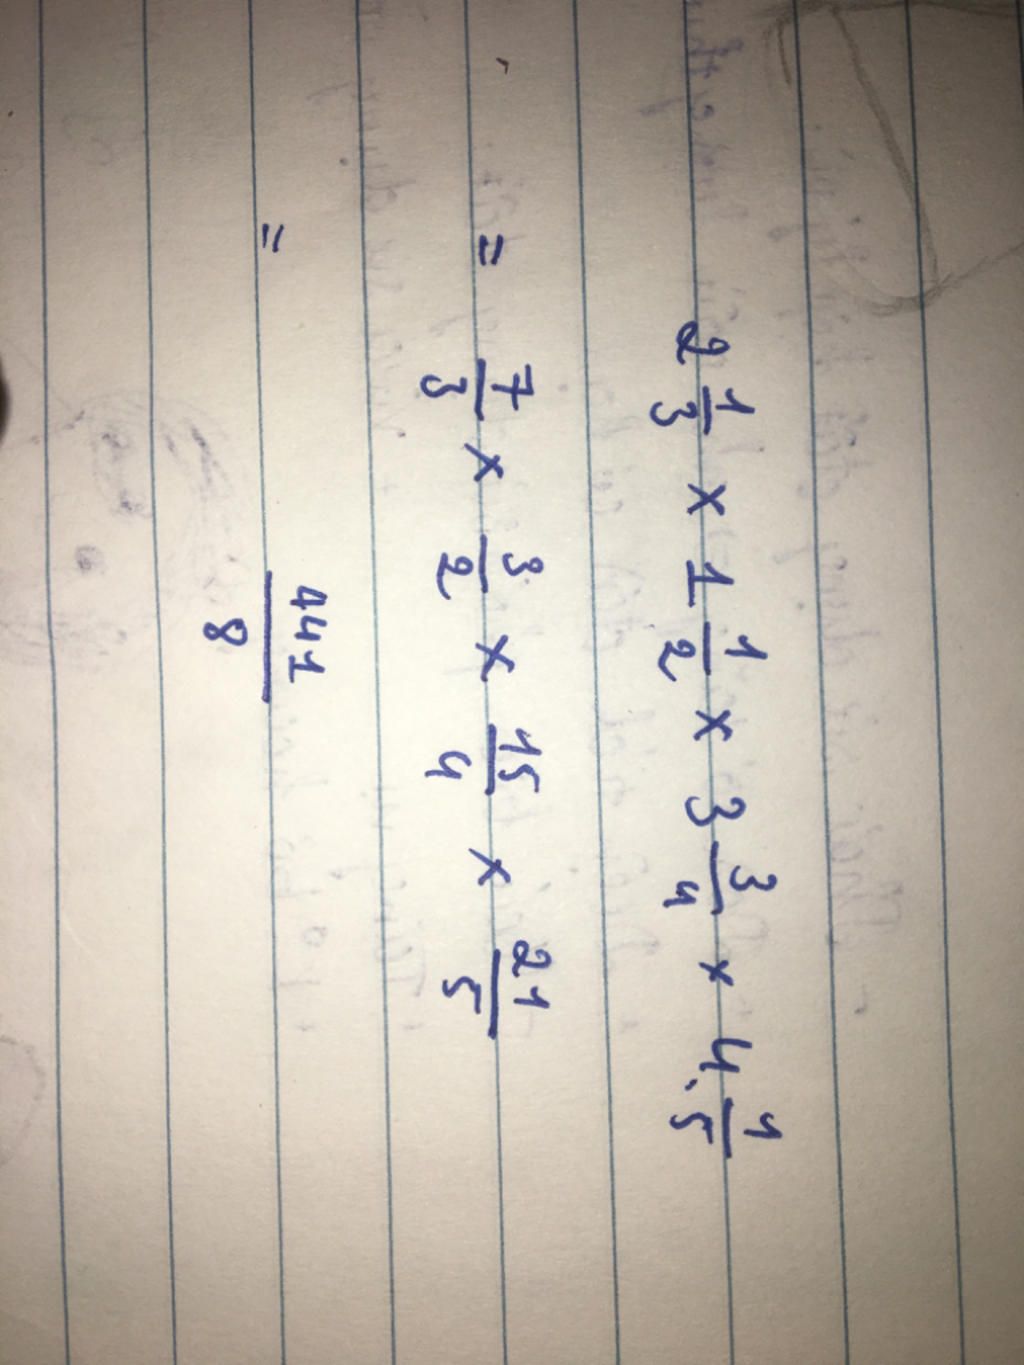 2 1/3 × 1 1/2 × 3 3/4 × 4 1/5
= 7/3 × 3/2 × 15/4 × 21/5
= 441/8